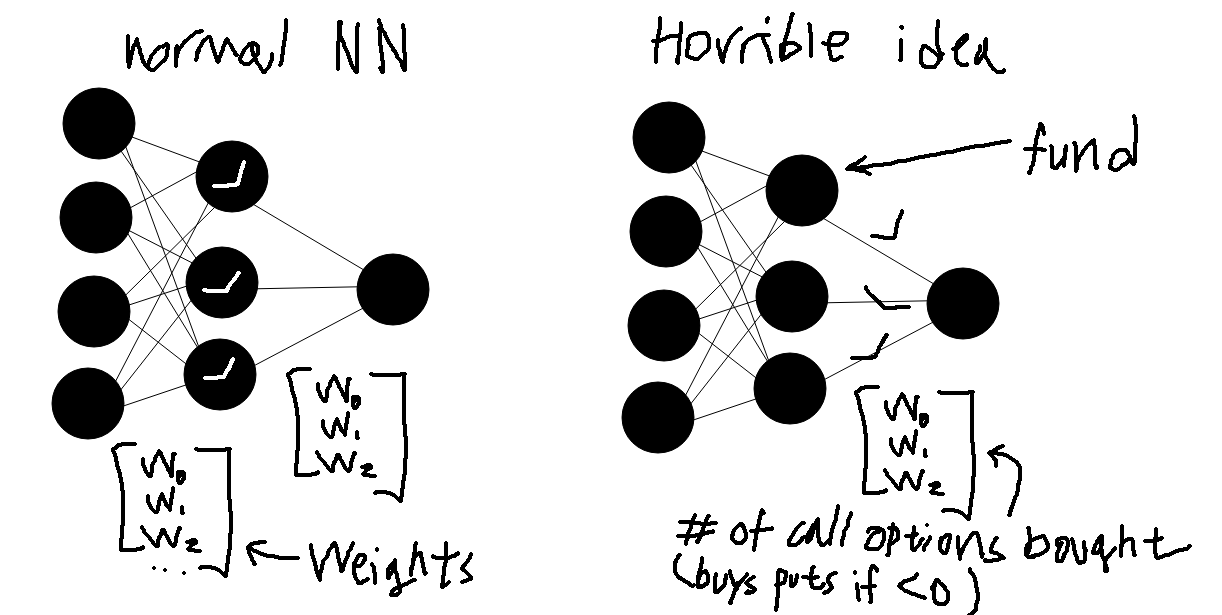 normal NN
W₀
W₁
W₂
W₀
W₁
W₂
...
Weights
Horrible idea
fund
W₀
W₁
W₂
# of call options bought
(buys puts if <0)